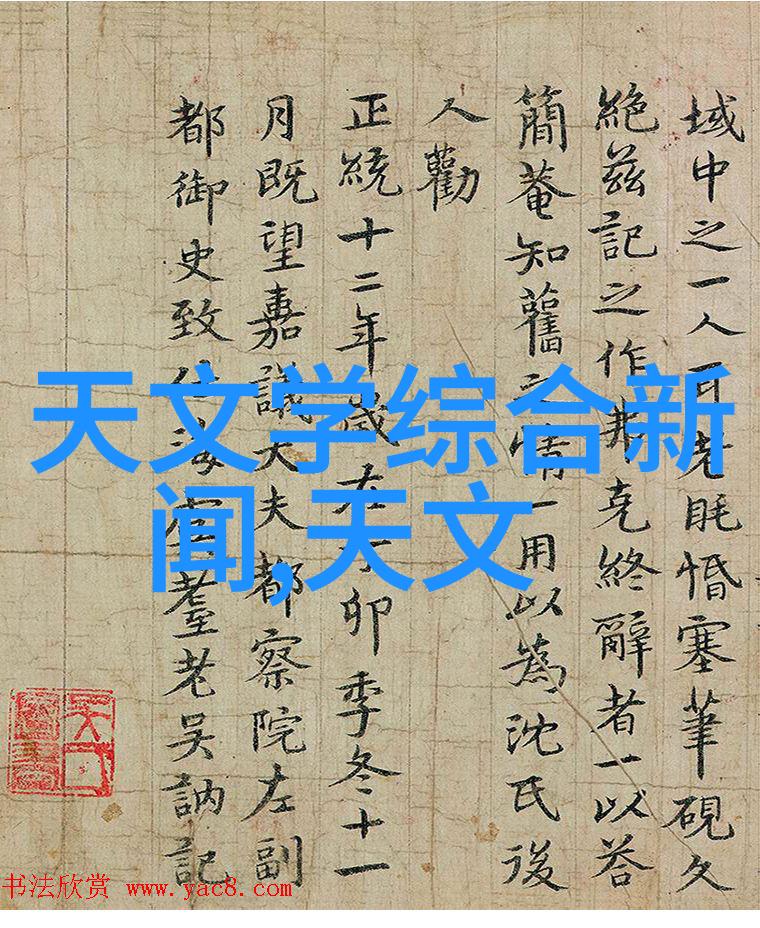 域中之一人老眊惛塞筆硯久
絶兹記之作弗克終辭者一以荅
簡菴知舊之情一用以為沈氏後
人勸
正統十二年歲在丁卯季冬十一
月既望嘉議大夫都察院左副
都御史致仕海虞耄老吳訥記
天文学综合新
闻,天文
书法欣赏 www.yac8.com